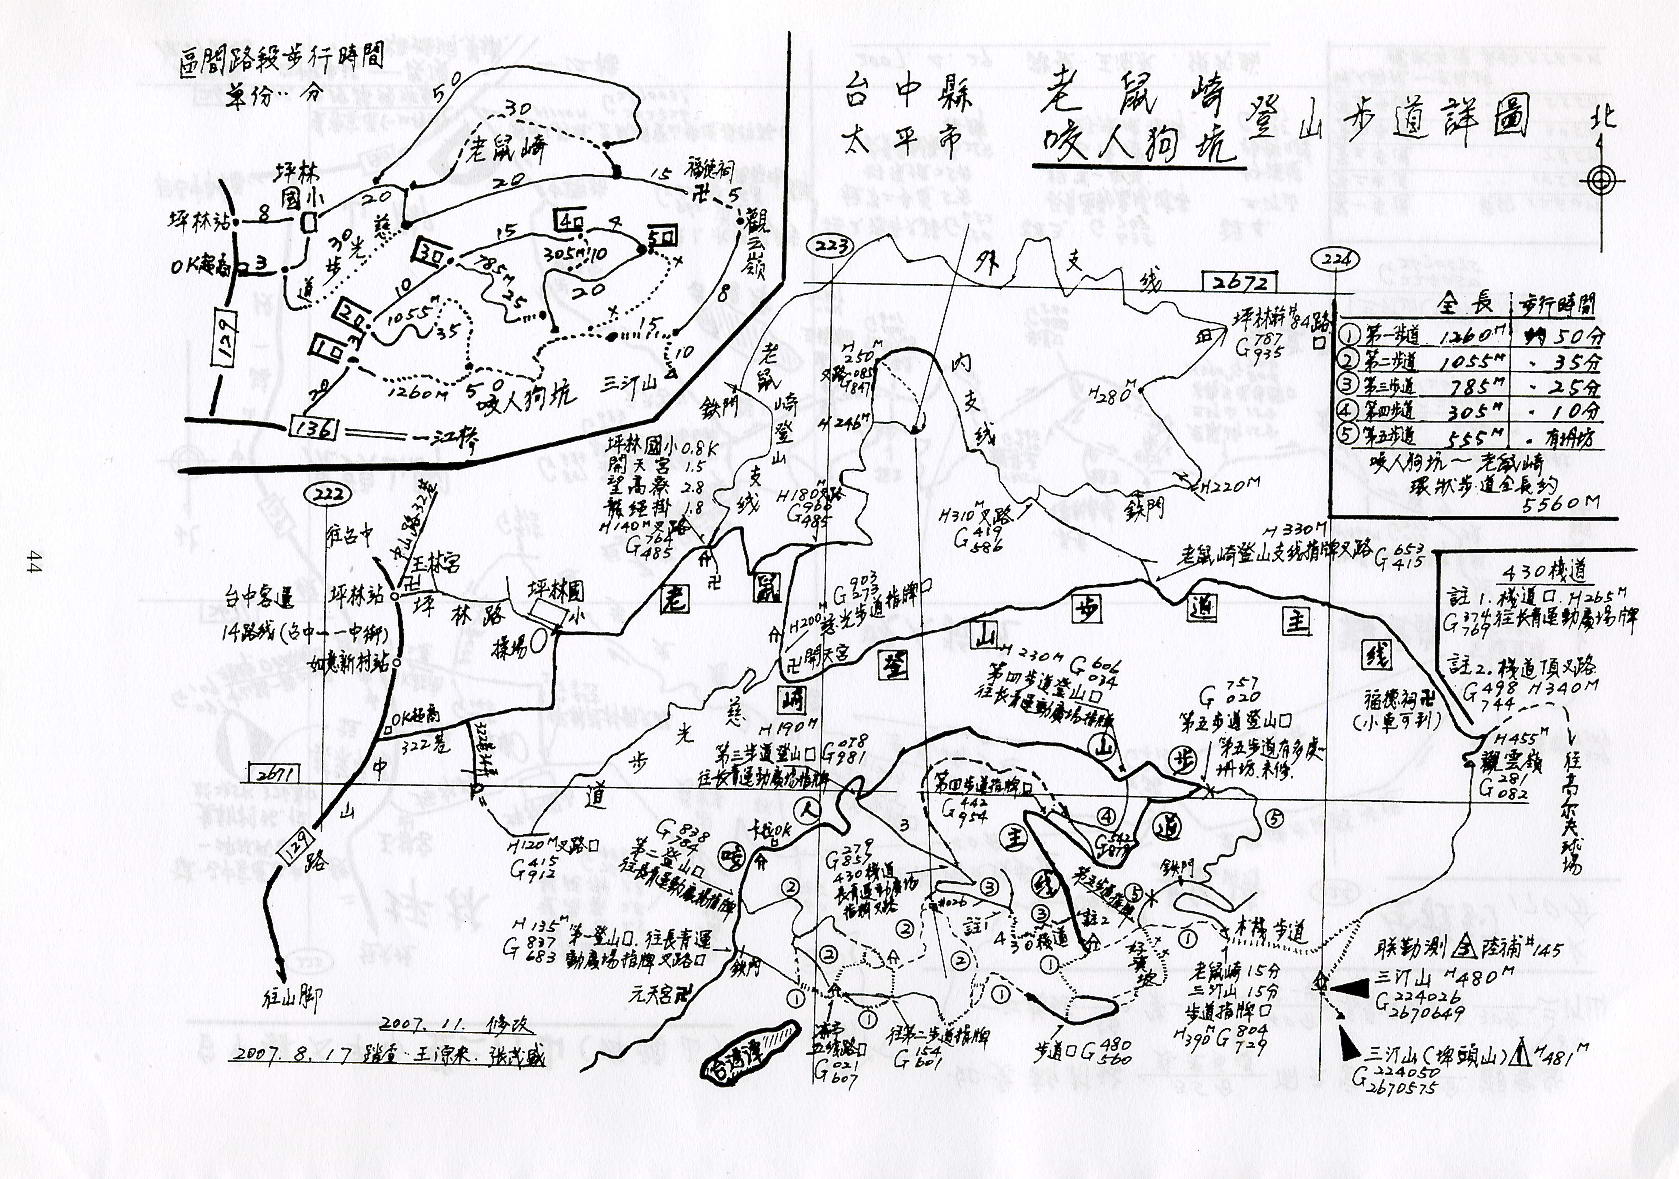 區間路段步行時間
單份:分
台中縣
太平市
老鼠崎
咬人狗坑
登山步道詳圖
北
50
30
老鼠崎
坪林
國小
20
20
15
福德祠
卍
5
觀云嶺
坪林站
8
慈
光
步
道
30
OK超商
3
15
4口
4
5口
3口
785M
305M
10
20
25
10
2口
1055M
35
8
15
10
1口
3
20
1260M
50
咬人狗坑
三汀山
129
136
一江橋
223
224
外支线
2672
坪林幹#84路口
G 787
935
全長 步行時間
①第一步道 1260M 約50分
②第二步道 1055M 〃35分
③第三步道 785M 〃25分
④第四步道 305M 〃10分
⑤第五步道 555M 〃有坍坊
咬人狗坑~老鼠崎
環狀步道全長約
5560M
老鼠崎登山支线
鉄門
H 250M
叉路085
G847
H246M
內支线
H280M
H220M
鉄門
坪林國小0.8K
開天宮 1.5
望高寮 2.8
龍經掛 1.8
H140M叉路
G 764
485
H180M叉路
G960
485
H310M叉路
G 419
586
H330M
老鼠崎登山支线指牌叉路 G 653
415
222
往台中
中山路322巷
玉林宮
卍
坪林站
坪林路
坪林國小
操場
台中客運
14路线(台中一一中街)
如意新村站
OK超商
322巷
2671
中
山
路
129
往山脚
老 鼠 崎 登 山 步 道 主 线
G 903
273
慈光步道指牌口
H200M
卍開天宮
慈
光
步
道
H120M叉路口
G 415
912
430棧道
註1.棧道口.H265M
G 374
769 往長青運動廣場指牌
註2.棧道頂叉路
G 498 H340M
744
福德祠卍
(小車可到)
H455M
觀雲嶺
G 281
082
往高尔夫球場
H 230M G 606
034
第四步道登山口
往長青運動廣場指牌
G 757
020
第五步道登山口
第五步道有多處
坍坊未修.
H190M
第三步道登山口 G 078
981
往長青運動廣場指牌
第四步道指牌口
G 442
954
G 542
879
咬 人 山 步 道 主 线
卡拉OK
G 838
784
第二登山口
往長青運動廣場指牌
G 279
857
430棧道
長青運動廣場
指牌叉路
註1
430棧道
註2
第五步道指牌
鉄門
木棧步道
H135M
G 837
683
第一登山口.往長青運
動廣場指牌叉路口
鉄門
元天宮卍
台湾潭
G 021
607
往第二步道指牌
G 154
601
步道口 G 480
560
老鼠崎 15分
三汀山 15分
步道指牌口
H390M G 804
729
联勤測 陸補#145
三汀山 H480M
G 224026
2670649
三汀山(埤頭山) H481M
G 224050
2670575
2007.11.修改
2007.8.17 踏查.王源來.張茂盛
44